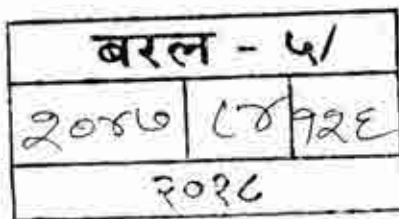 बरल - ५/
२०४७ ८४ १२६
२०१८